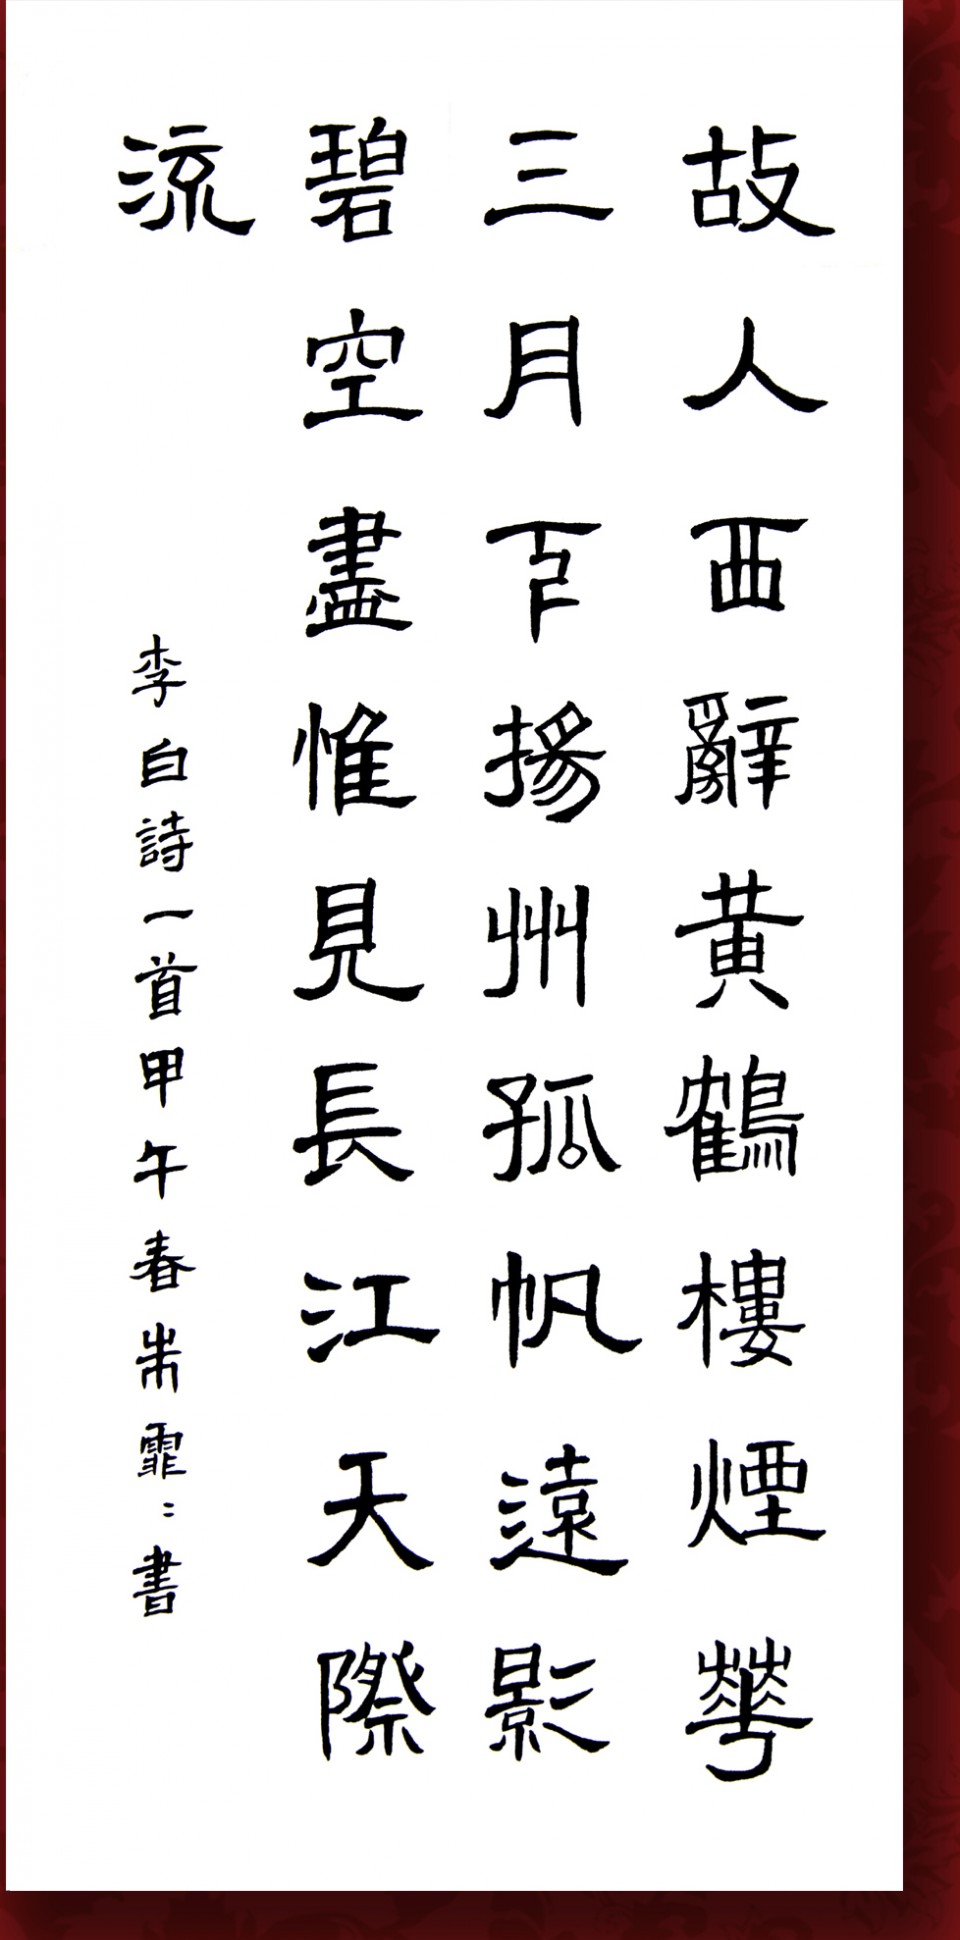 故人西辭黄鶴樓煙華
三月下揚州孤帆遠影
碧空盡惟見長江天際
流
李白詩一首甲午春朱霏〻書